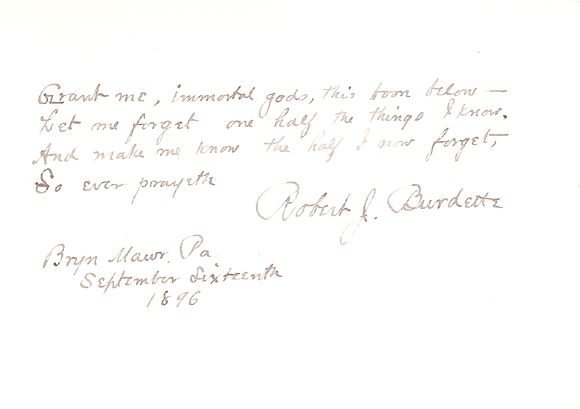 Grant me, immortal gods, this boon below —
Let me forget one half the things I know,
And make me know the half I now forget,
So ever prayeth
Robert J. Burdette
Bryn Mawr. Pa.
September Sixteenth
1896